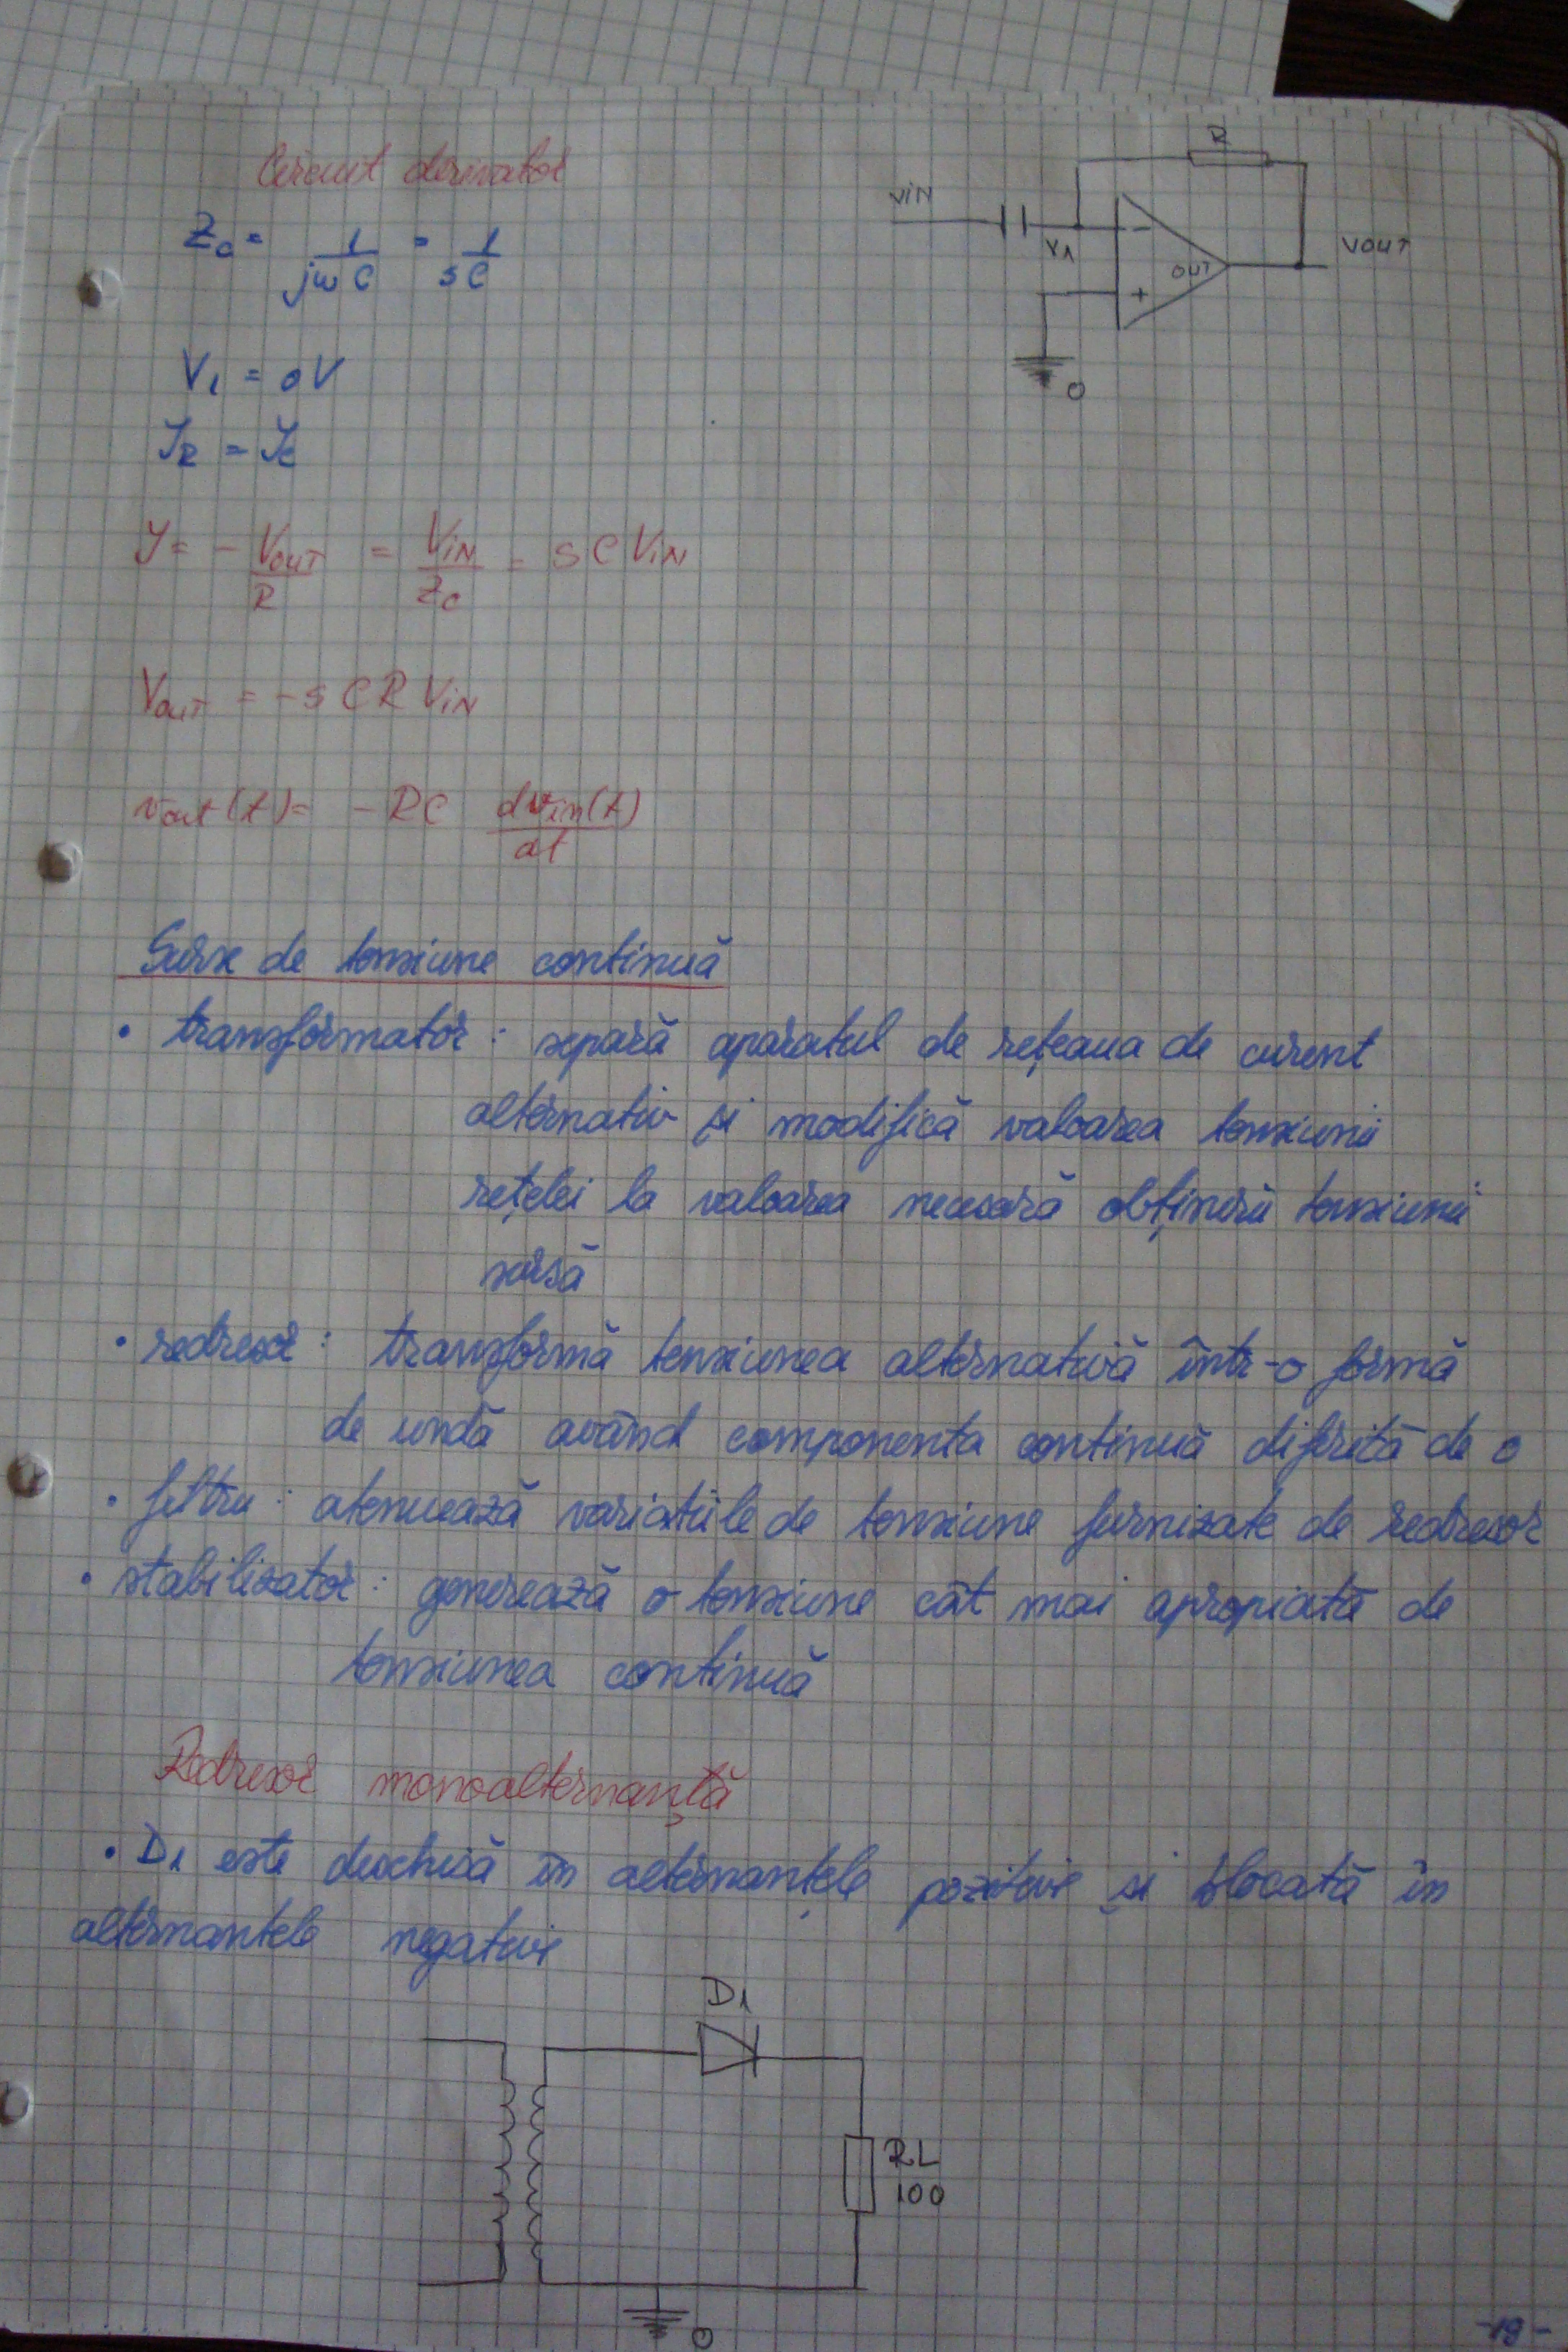 Circuit derivator
Zc = 1/jωC = 1/sC
V1 = 0V
IR = IC
I = - VOUT/R = VIN/Zc = sCVIN
VOUT = -sCRVIN
vout(t) = -RC dvin(t)/dt
VIN
R
V1
-
+
OUT
VOUT
0
Surse de tensiune continuă
• transformator : separă aparatul de rețeaua de curent
alternativ și modifică valoarea tensiunii
rețelei la valoarea necesară obținerii tensiunii
• redresor : transformă tensiunea alternativă într-o formă
de undă având componenta continuă diferită de 0
• filtru : atenuează variatiile de tensiune furnizate de redresor
• stabilizator : generează o tensiune cât mai apropiată de
tensiunea continuă
Redresor monoalternanță
• D1 este deschisă în alternanțele pozitive și blocată în
alternantele negative
D1
RL
100
0
-19-